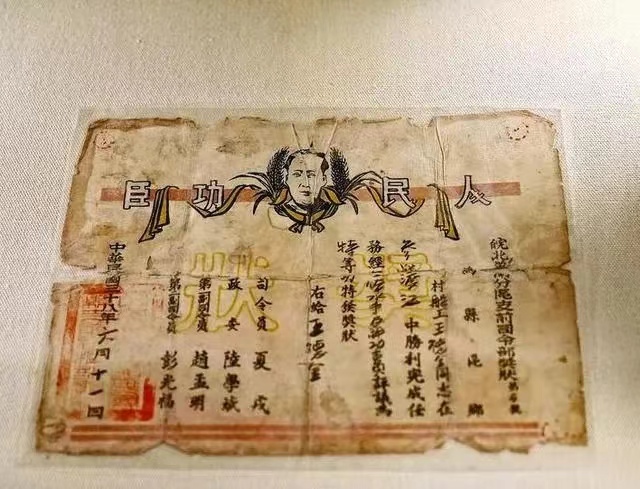 人民功臣
獎狀
皖北分區支前司令部獎狀第號
縣鄉
村船工王德金同志在
渡江中勝利完成任
務經評議為
特等功特發獎狀
右給王德金
司令員 夏戎
政委 陸學斌
第一副司令員 趙孟明
第二副司令員 彭光福
中華民國三十八年六月十一日